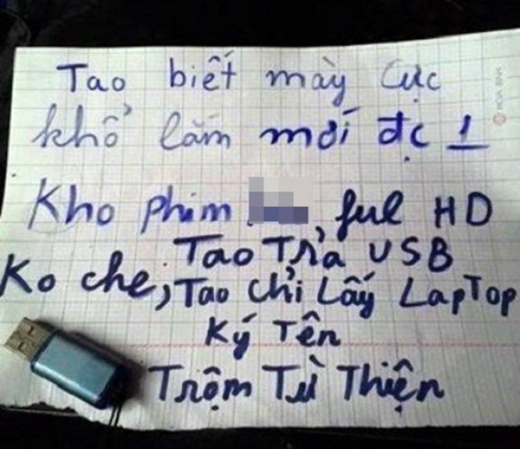 Tao biết mày cực
khổ lắm mới đc 1
Kho phim , ful HD
Ko che, Tao Trả USB
Tao chỉ Lấy LapTop
Ký Tên
Trộm Từ Thiện